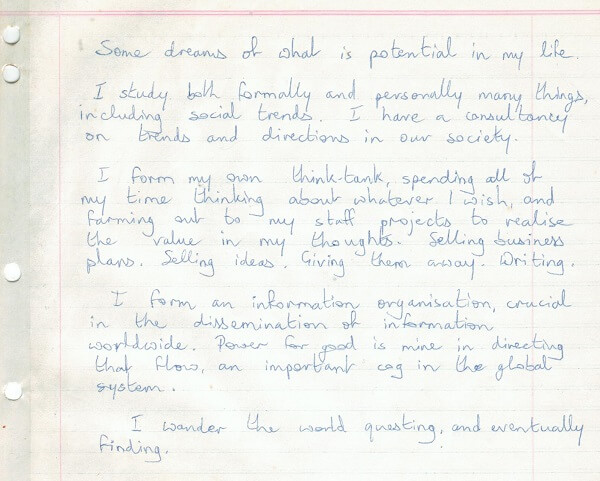 Some dreams of what is potential in my life.
I study both formally and personally many things,
including social trends. I have a consultancy
on trends and directions in our society.
I form my own think-tank, spending all of
my time thinking about whatever I wish, and
farming out to my staff projects to realise
the value in my thoughts. Selling business
plans. Selling ideas. Giving them away. Writing.
I form an information organisation, crucial
in the dissemination of information
worldwide. Power for good is mine in directing
that flow, an important cog in the global
system.
I wander the world questing, and eventually
finding.